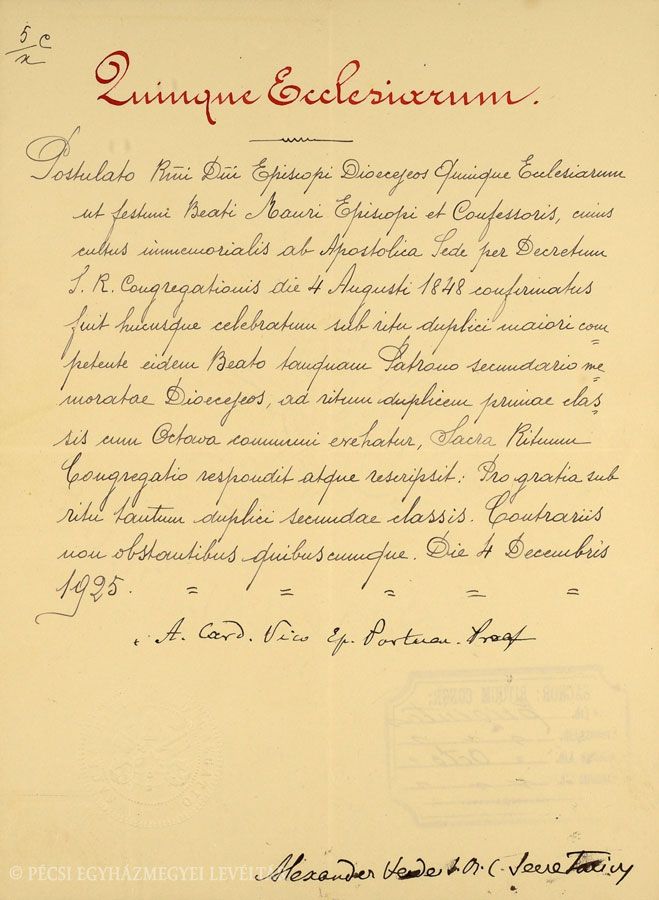 5 C
x
Quinque Ecclesiarum.
Postulato Rmi Dni Episcopi Dioeceseos Quinque Ecclesiarum
ut festum Beati Mauri Episcopi et Confessoris, cuius
cultus immemorialis ab Apostolica Sede per Decretum
S. R. Congregationis die 4 Augusti 1848 confirmatus
fuit hucusque celebratum sub ritu duplici maiori com=
petente eidem Beato tanquam Patrono secundario me=
moratae Dioeceseos, ad ritum duplicem primae clas=
sis cum Octava communi evehatur, Sacra Rituum
Congregatio respondit atque rescripsit: Pro gratia sub
ritu tantum duplici secundae classis. Contrariis
non obstantibus quibuscumque. Die 4 Decembris
1925. = = = = =
A. Card. Vico Ep. Portuen. Praef
SACROR: RITUUM CONGR:
© PÉCSI EGYHÁZMEGYEI LEVÉLT
Alexander Verde S. R. C. Secretarius